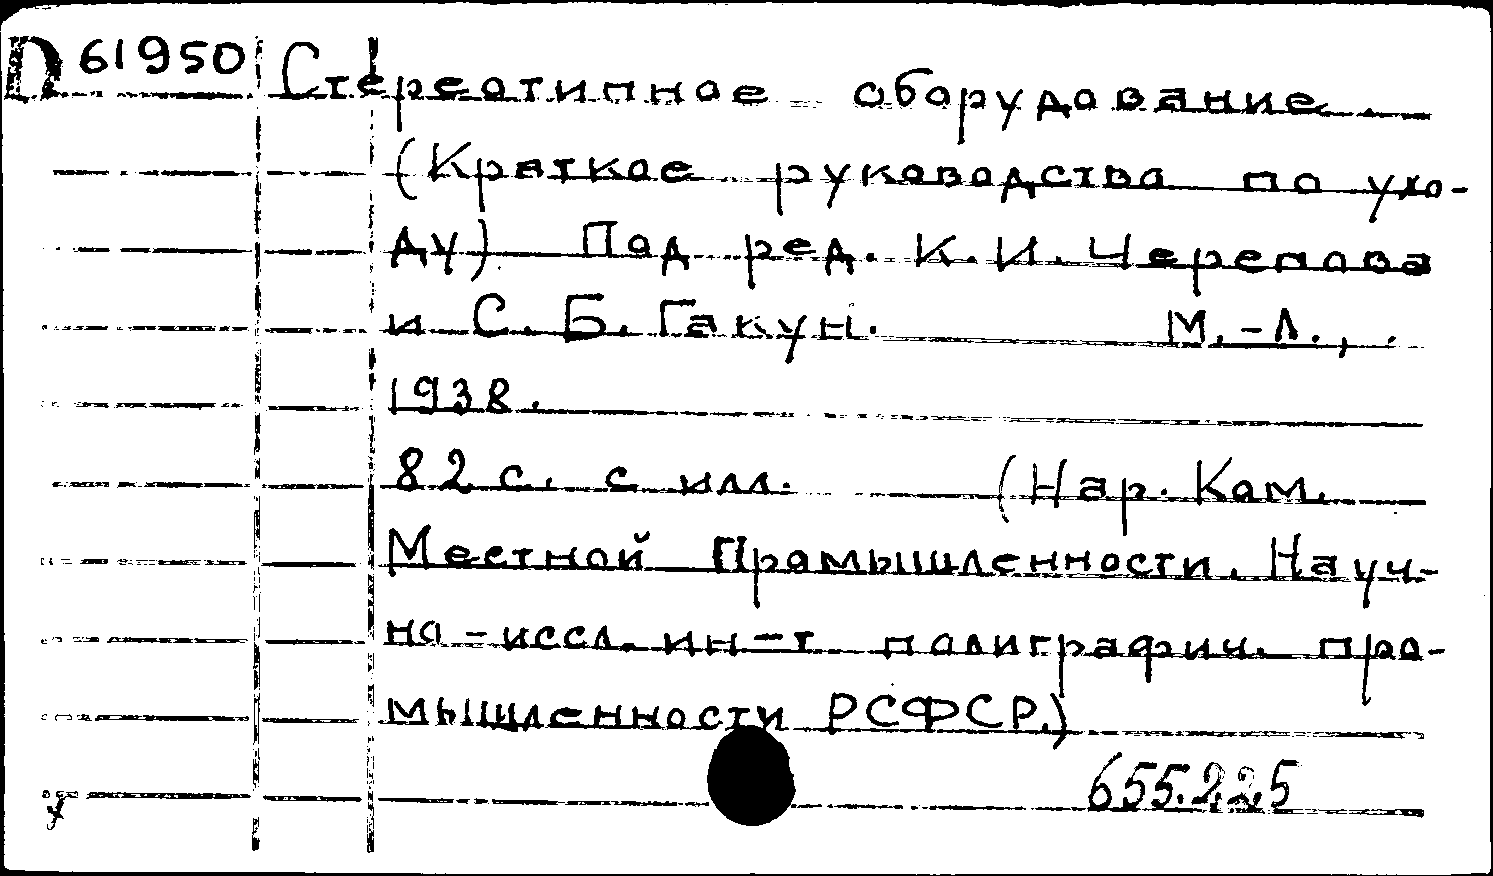 D 61950 Стереотипное оборудование.
(Краткое руководство по ухо-
ду) Под ред. К. И. Черепова
и С. Б. Гакун. М.-Л.,.
1938.
82 с. с илл. (Нар. Ком.
Местной Промышленности. Науч-
но-иссл. ин-т полиграфич. про-
мышленности РСФСР.)
655.2,2,5